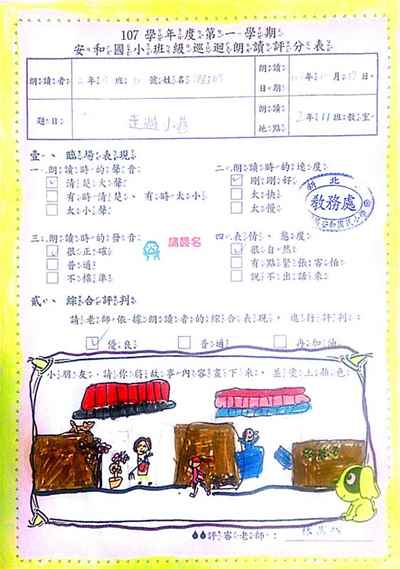 107學年度第一學期
安和國小班級巡迴朗讀評分表
朗讀者 2年 班 號姓名
朗讀日期 月17日
題目 走過小巷
朗讀地點 2年11班教室
壹、臨場表現
一、朗讀時的聲音
清楚大聲
有時清楚、有時太小
太小聲
二、朗讀時的速度
剛剛好
太快
太慢
新北
教務處
三、朗讀時的發音
很正確
普通
不標準
請簽名
四、表情、態度
很自然
有點緊張害怕
說不出話來
貳、綜合評判
請老師依據朗讀者的綜合表現,進行評判:
優良
普通
再加油
小朋友,請你將故事內容畫下來,並塗上顏色:
評審老師: